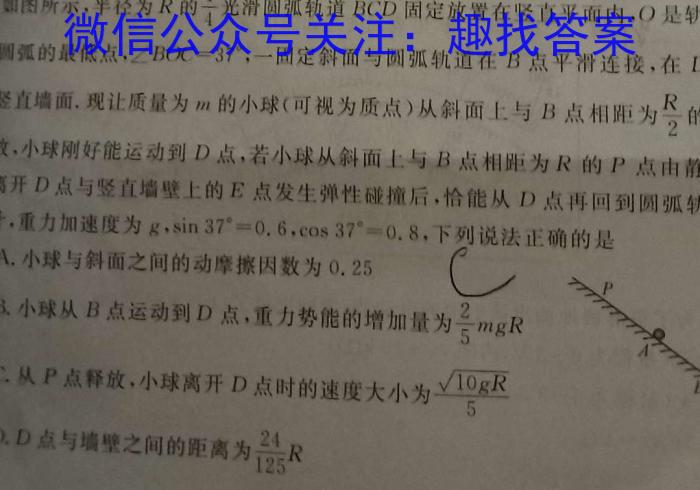 如图所示,半径为 R 的 1/4 光滑圆弧轨道 BCD 固定放置在竖直平面内,O 是轨
微信公众号关注:趣找答案
圆弧的最低点,∠BOC=37°,一固定斜面与圆弧轨道在 B 点平滑连接,在
竖直墙面.现让质量为 m 的小球(可视为质点)从斜面上与 B 点相距为 R/2 的
放,小球刚好能运动到 D 点,若小球从斜面上与 B 点相距为 R 的 P 点由静
离开 D 点与竖直墙壁上的 E 点发生弹性碰撞后,恰能从 D 点再回到圆弧轨
,重力加速度为 g,sin 37°=0.6,cos 37°=0.8,下列说法正确的是
A. 小球与斜面之间的动摩擦因数为 0.25
B. 小球从 B 点运动到 D 点,重力势能的增加量为 2/5 mgR
C. 从 P 点释放,小球离开 D 点时的速度大小为 √10gR/5
D. D 点与墙壁之间的距离为 24/125 R
P
A